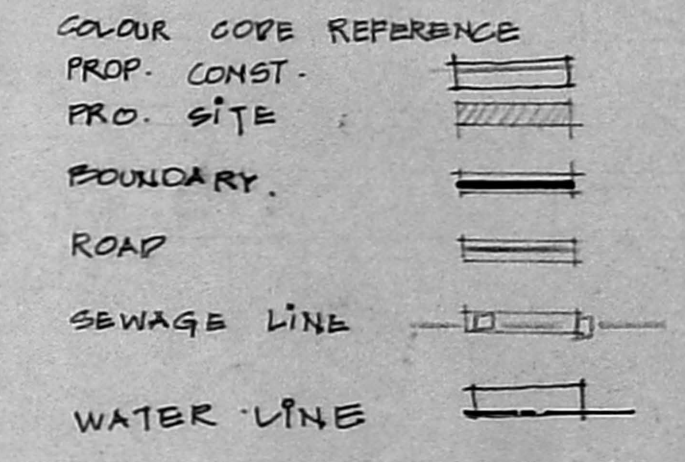 COLOUR CODE REFERENCE
PROP. CONST.
PRO. SITE
BOUNDARY.
ROAD
SEWAGE LINE
WATER LINE